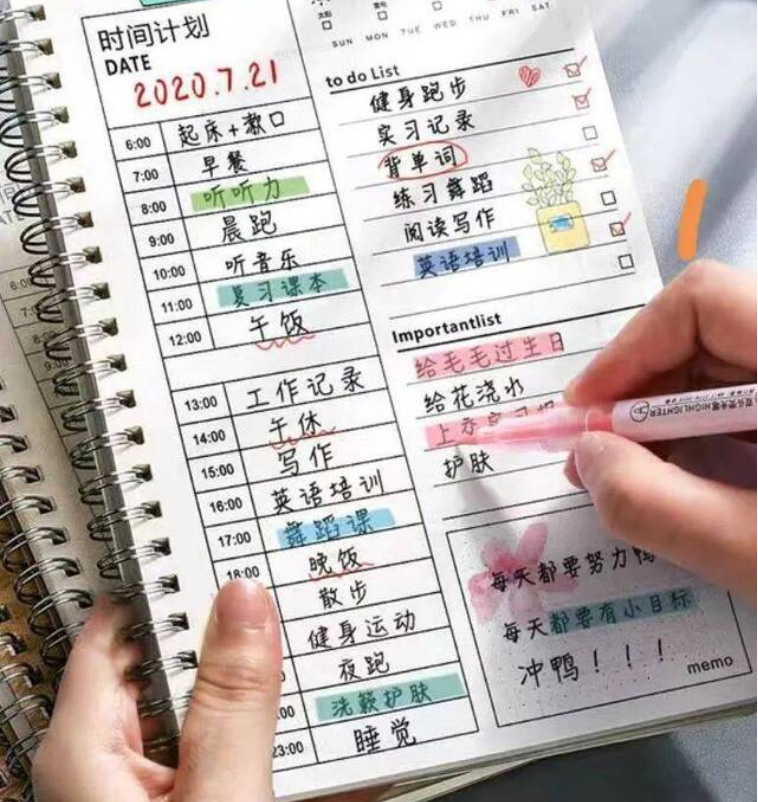 时间计划
DATE
2020.7.21
6:00 起床+漱口
7:00 早餐
8:00 听听力
9:00 晨跑
10:00 听音乐
11:00 复习课本
12:00 午饭
13:00 工作记录
14:00 午休
15:00 写作
16:00 英语培训
17:00 舞蹈课
18:00 晚饭
散步
健身运动
夜跑
:00 洗簌护肤
23:00 睡觉
SUN MON TUE WED THU FRI SAT
to do List
健身跑步
实习记录
背单词
练习舞蹈
阅读写作
英语培训
Importantlist
给毛毛过生日
给花浇水
上交
护肤
HIGHLIGHTER
每天都要努力鸭
每天都要有小目标
冲鸭！！！
memo